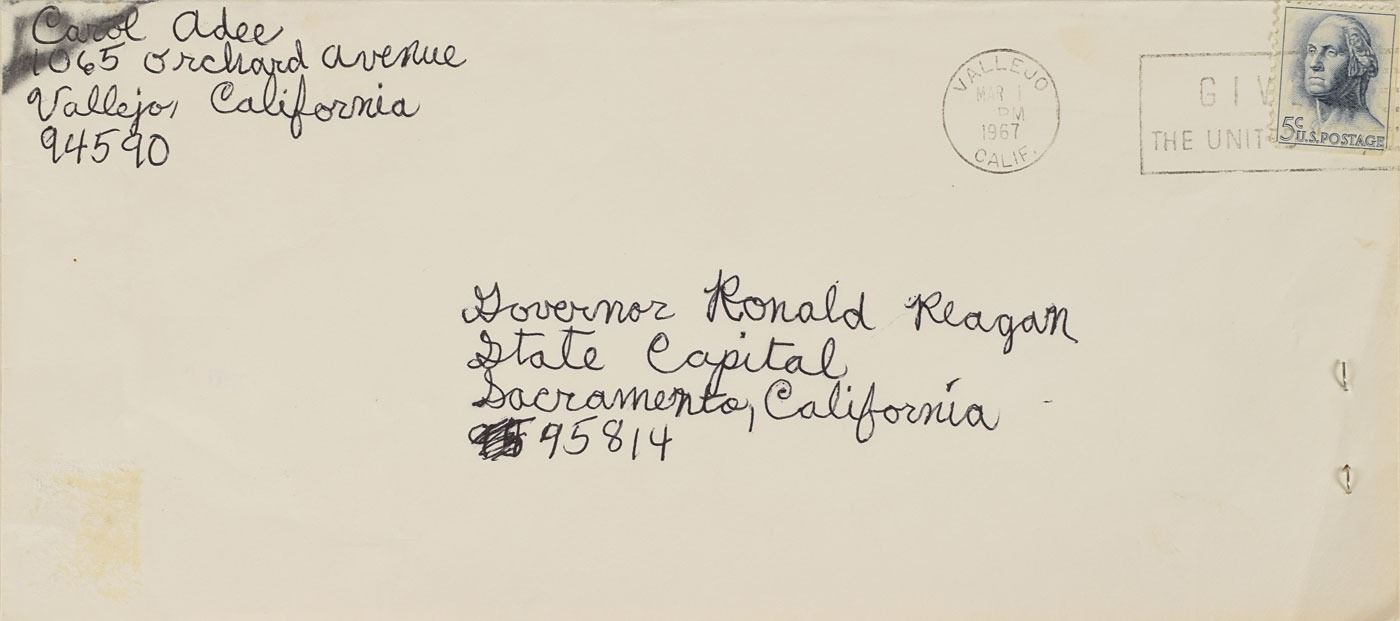 Carol Adee
1065 Orchard Avenue
Vallejo, California
94590
VALLEJO
MAR 1
PM
1967
CALIF.
GIV
THE UNIT
5c
U.S.POSTAGE
Governor Ronald Reagan
State Capital
Sacramento, California
95814